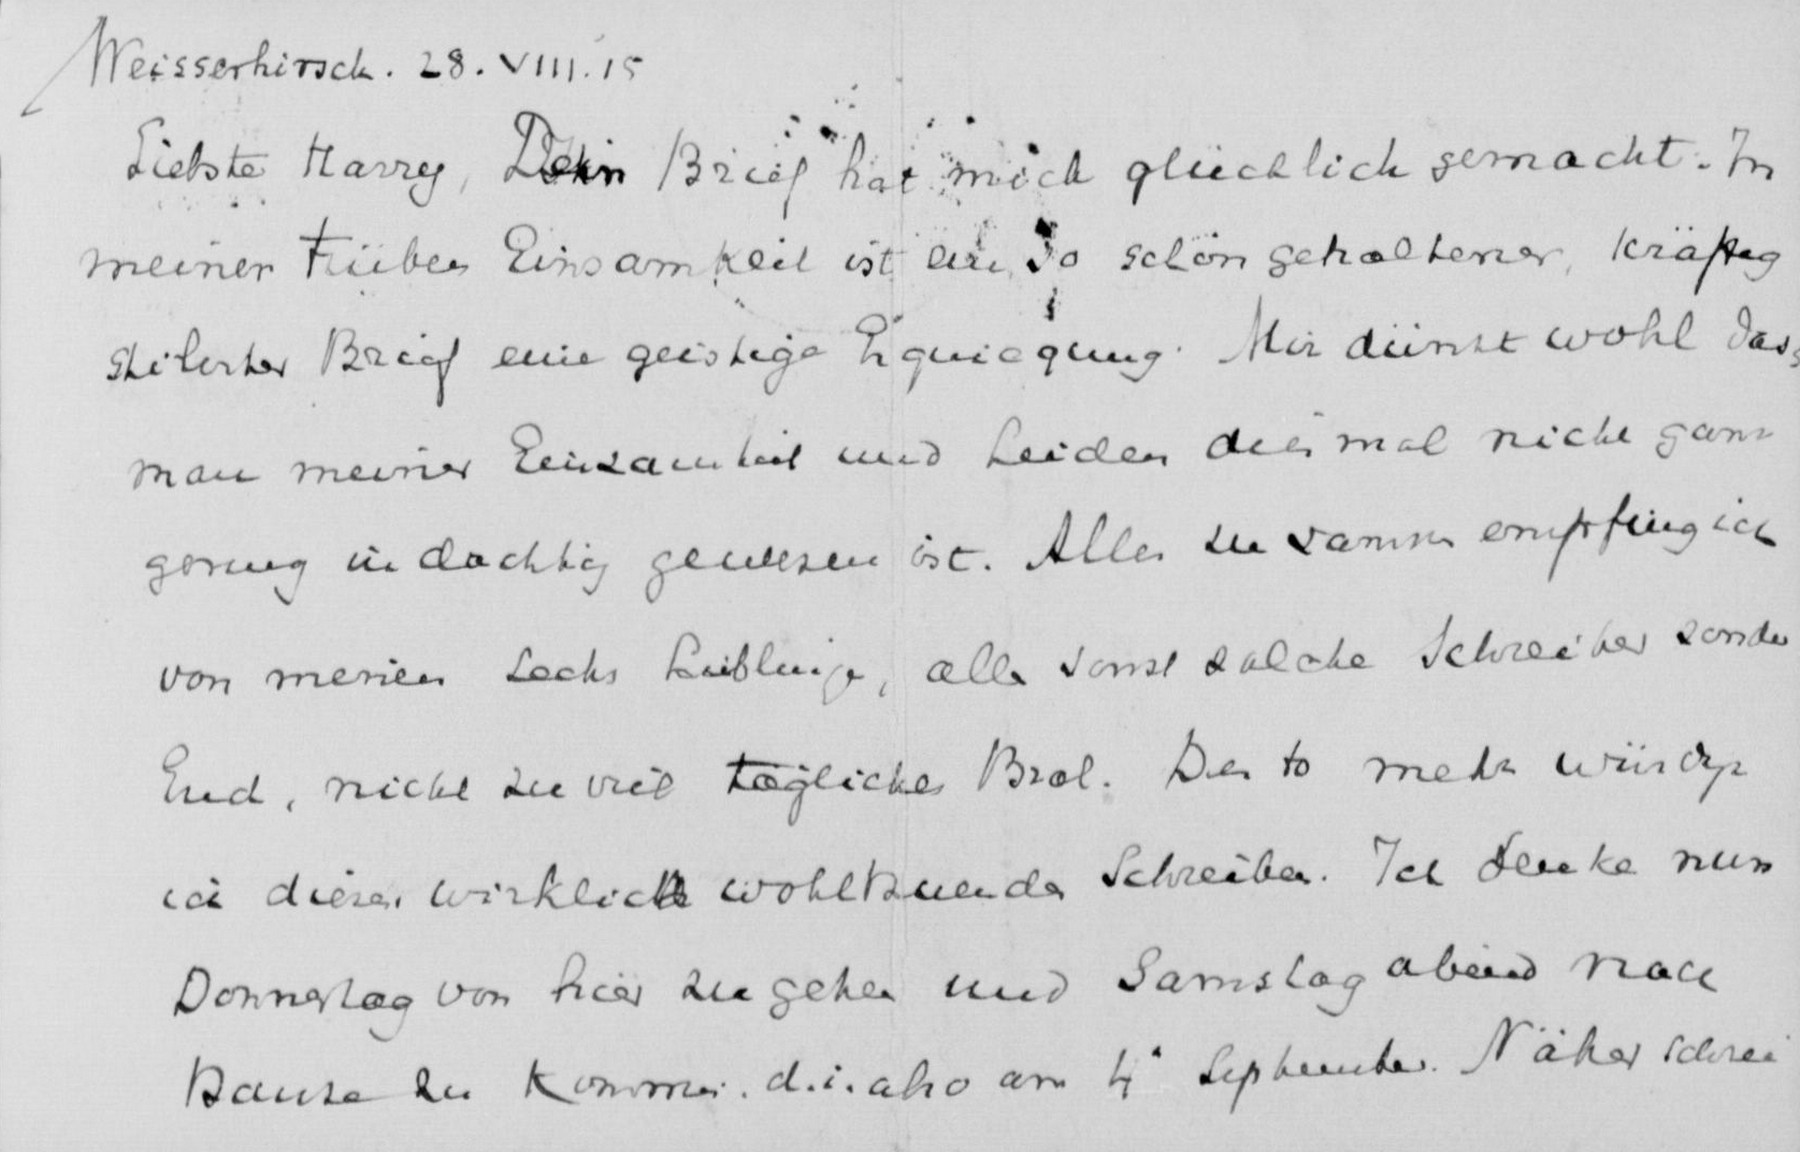 Weisserhirsch. 28. VIII. 15
Liebste Harry, Dein Brief hat mich glücklich gemacht. In
meiner trüben Einsamkeit ist ein so schön gehaltener, kräftig
stilister Brief eine geistige Erquicqung. Mir dünkt wohl dass
man meiner Einsamkeit und Leiden diesmal nicht ganz
genug indachtig gewesen ist. Alles zu samm empfing ich
von meinen sechs Lieblinge, alle sonst solche Schreiber sonder
End, nicht zu viel tägliches Brot. Des to mehr würdge
ich dieses wirklich wohlthuende Schreiben. Ich denke nun
Donnerstag von hier zu gehen und Samstag abend nach
Hause zu kommen. d.i. also am 4. September. Näher schrei